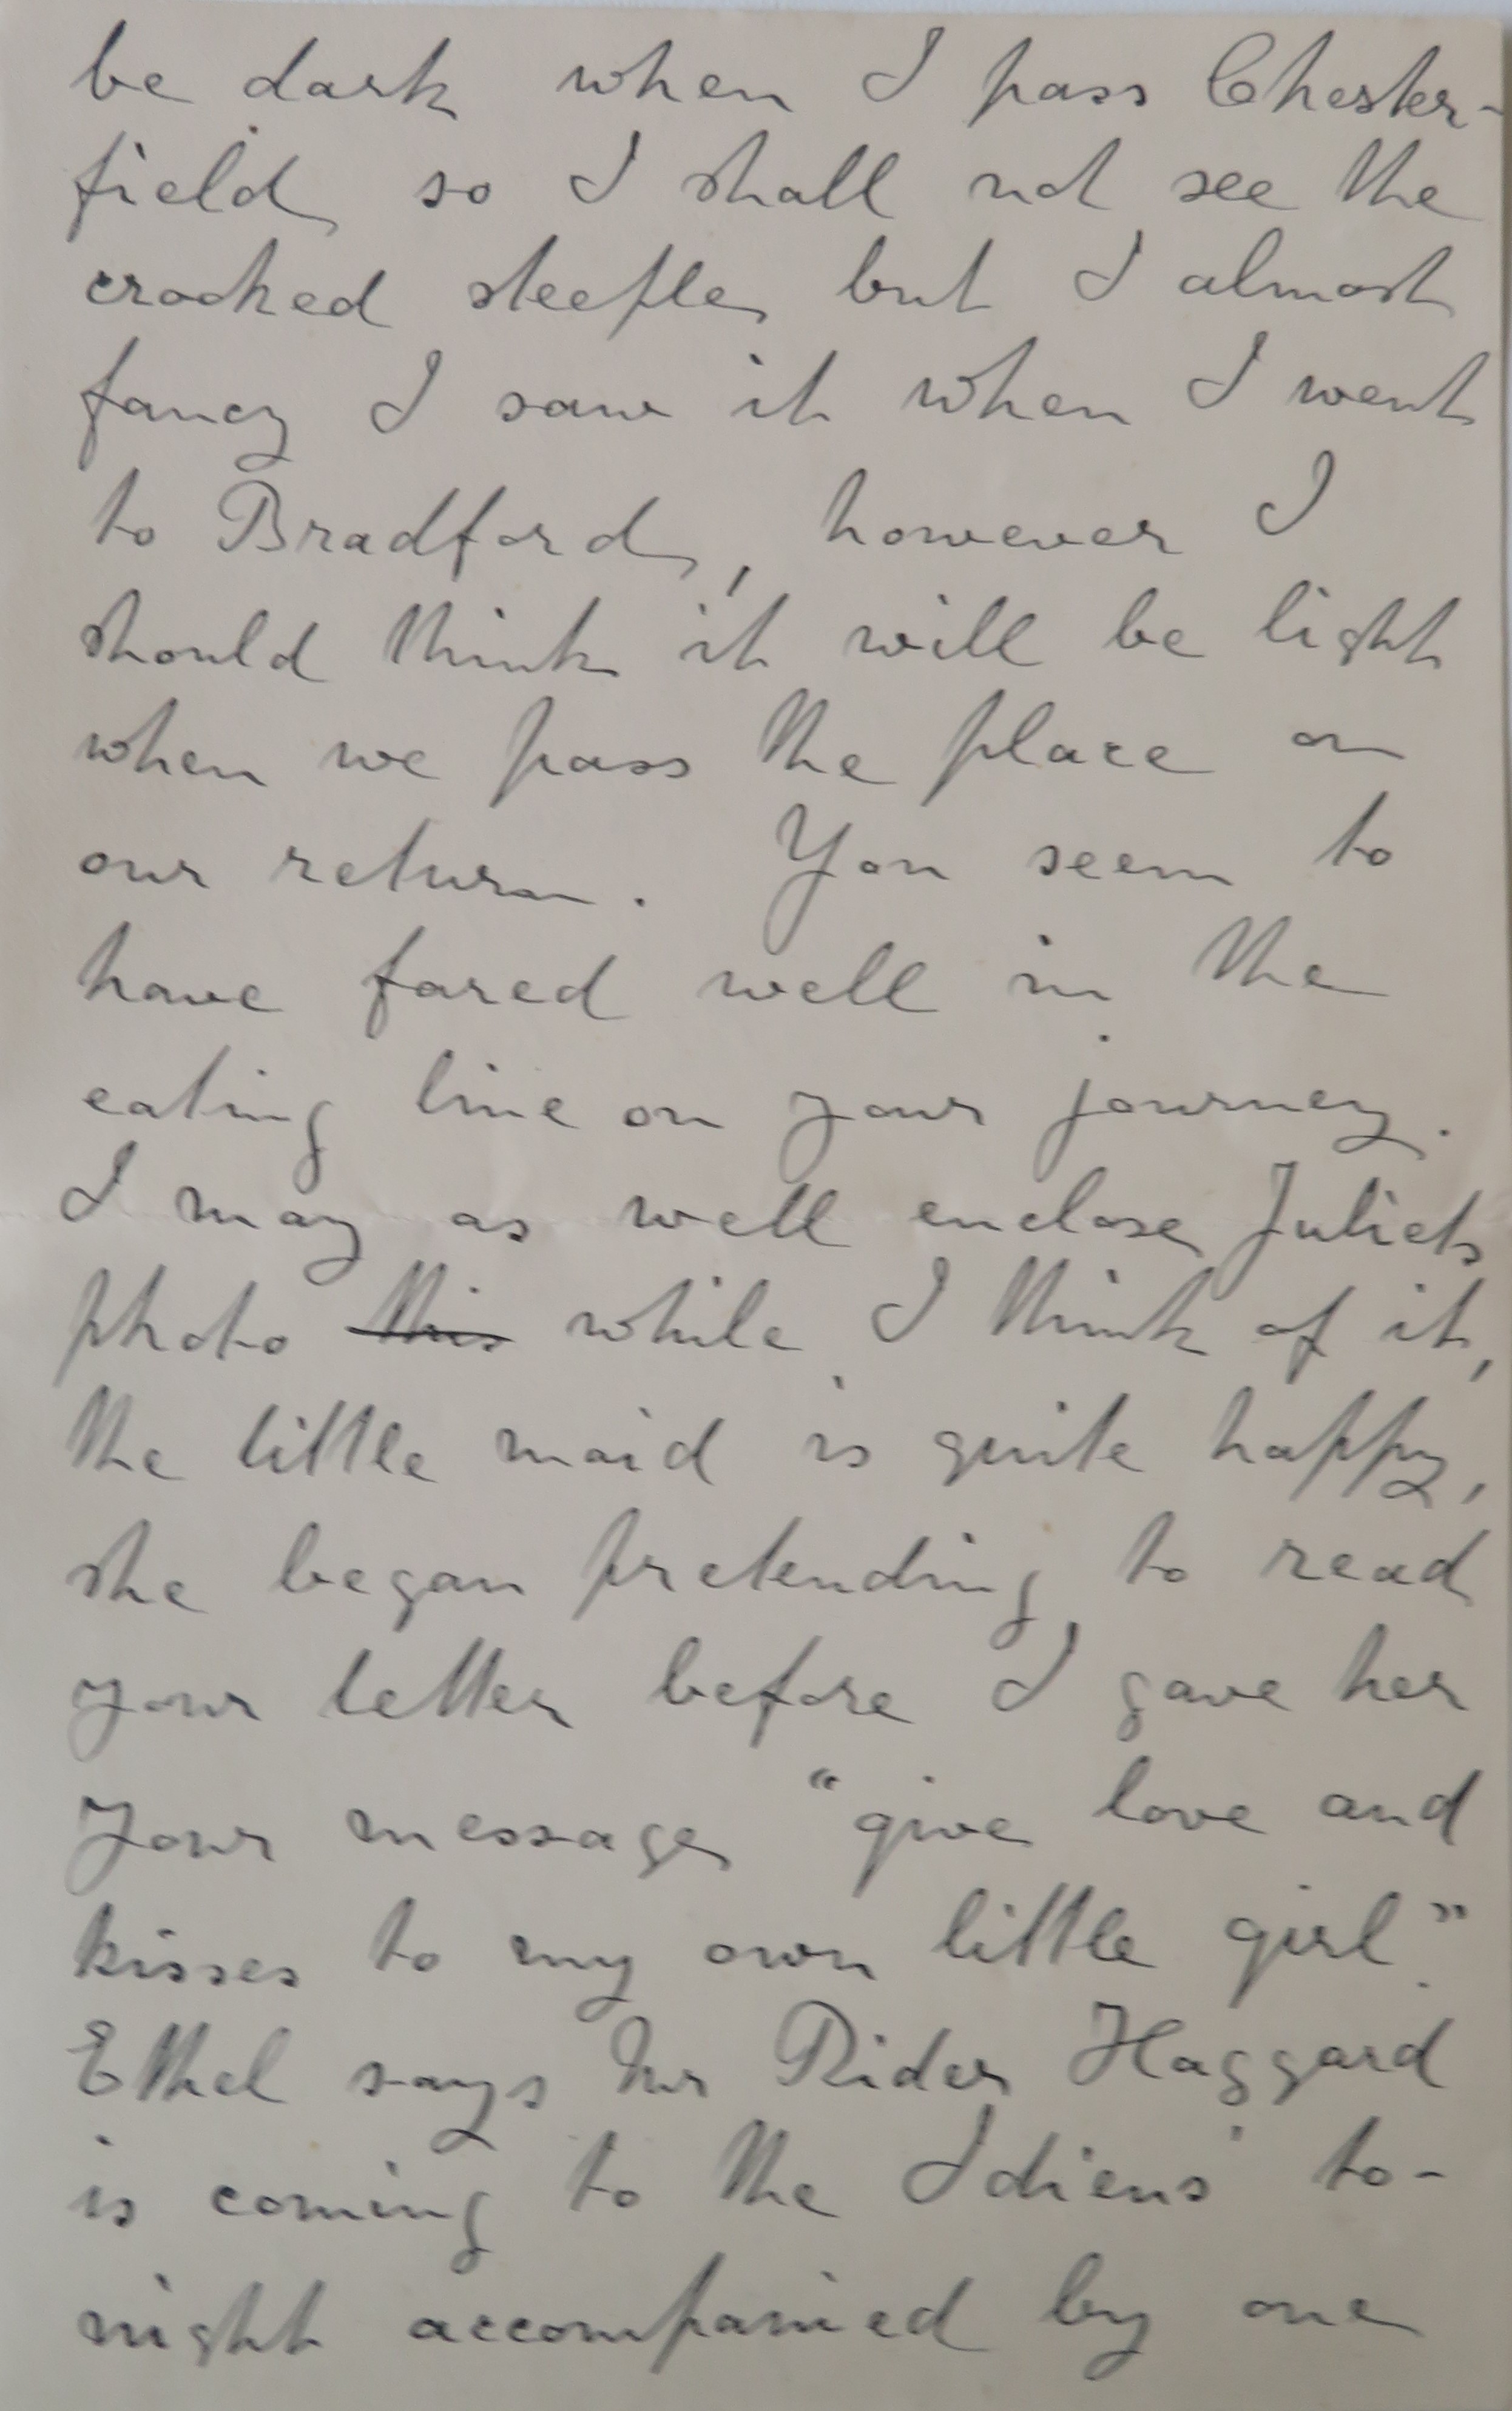 be dark when I pass Chester-
field, so I shall not see the
crooked steeple, but I almost
fancy I saw it when I went
to Bradford, however I
should think it will be light
when we pass the place on
our return. You seem to
have fared well in the
eating line on your journey.
I may as well enclose Juliets
photo this while I think of it,
the little maid is quite happy,
she began pretending to read
your letter before I gave her
your message "give love and
kisses to my own little girl".
Ethel says Mr Rider Haggard
is coming to the Idiens' to-
night accompanied by one